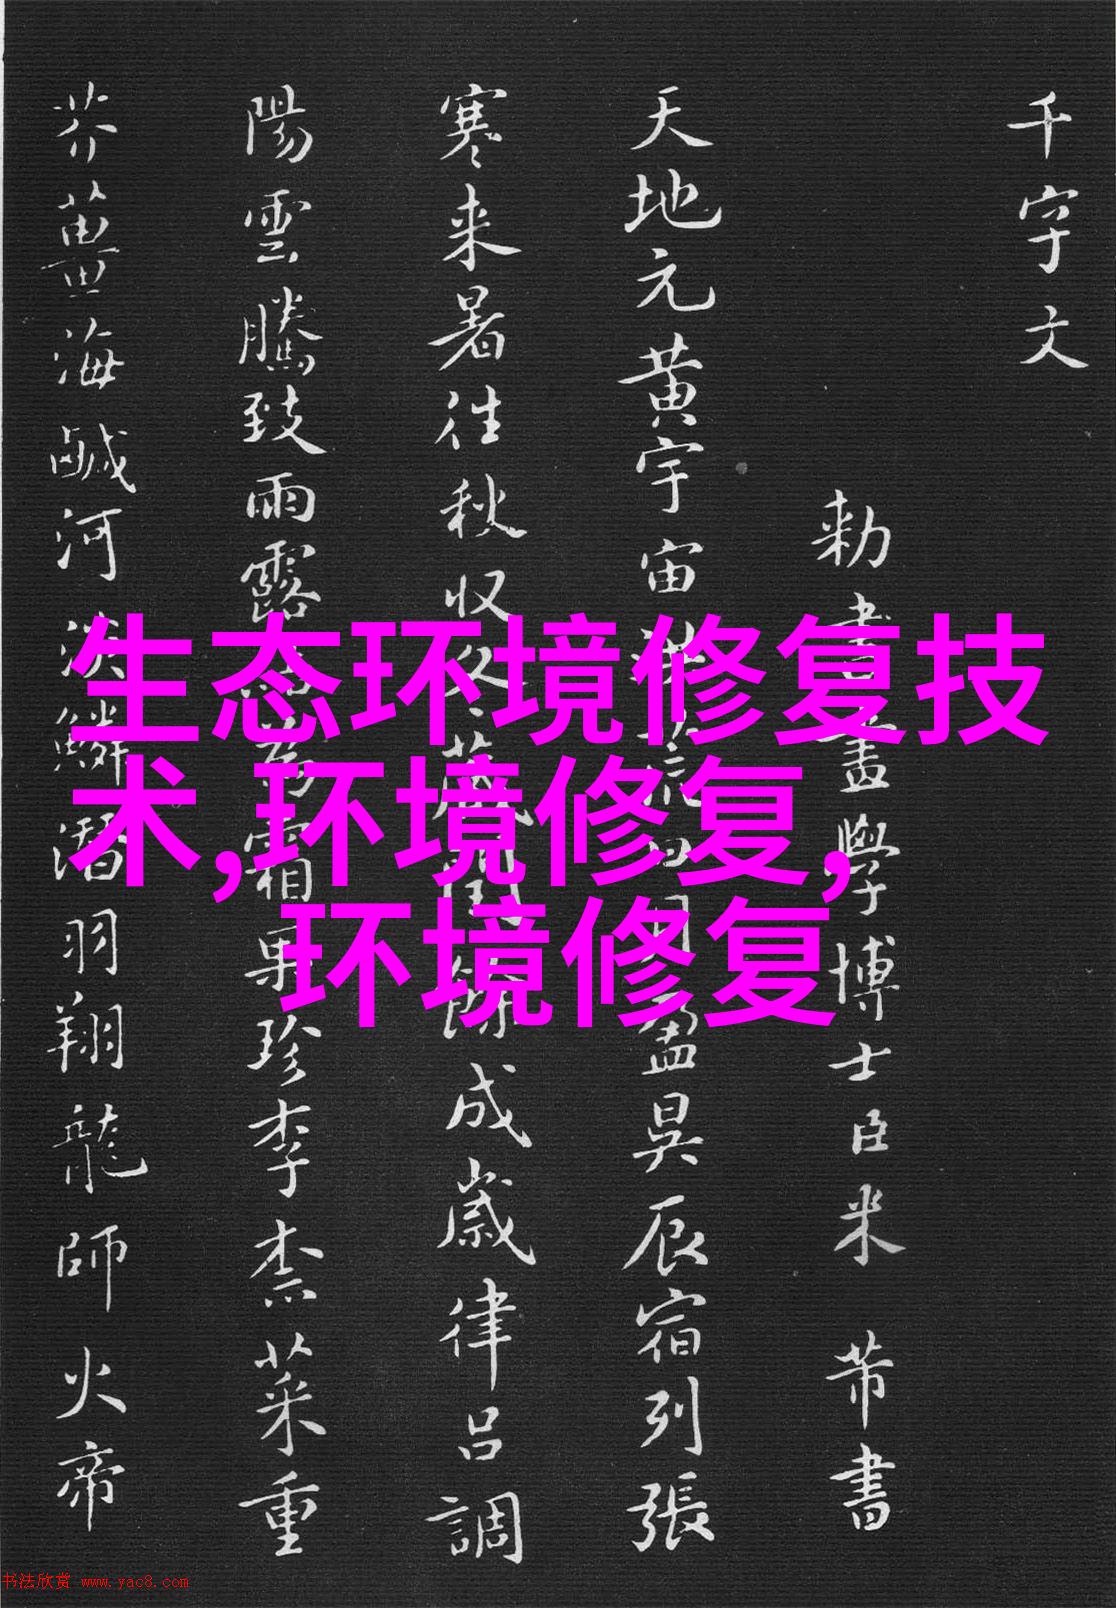 千字文
勅書畫學博士臣米芾書
天地元黄宇宙洪荒日月盈昃辰宿列張
寒来暑往秋收冬藏閏餘成歲律吕調
陽雲騰致雨露爲霜果珍李柰菜重
芥薑海鹹河淡鱗潛羽翔龍師火帝
生态环境修复技
术,环境修复,
环境修复
书法欣赏 www.yac8.com